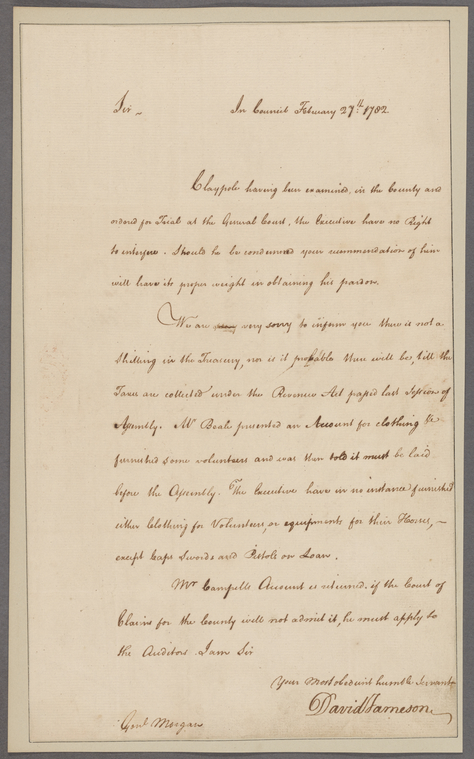 Sir — In Council February 27th 1782
Claypole having been examined, in the County and
ordered for Trial at the General Court, the Executive have no Right
to interfere. Should he be condemned your recommendation of him
will have its proper weight in obtaining his pardon.
We are very sorry to inform you there is not a
Shilling in the Treasury, nor is it probable there will be, till the
Taxes are collected under the Revenue Act passed last Session of
Assembly. Mr Beale presented an Account for clothing &c
furnished some volunteers and was then told it must be laid
before the Assembly. The Executive have in no instance furnished
either Clothing for Volunteers, or equipments for their Horses, —
except Caps Swords and Pistols on Loan.
Mr Campbells Account is returned. if the Court of
Claims for the County will not admit it, he must apply to
the Auditors I am Sir
Your Most obedient humble Servant
David Jameson
Genl Morgan